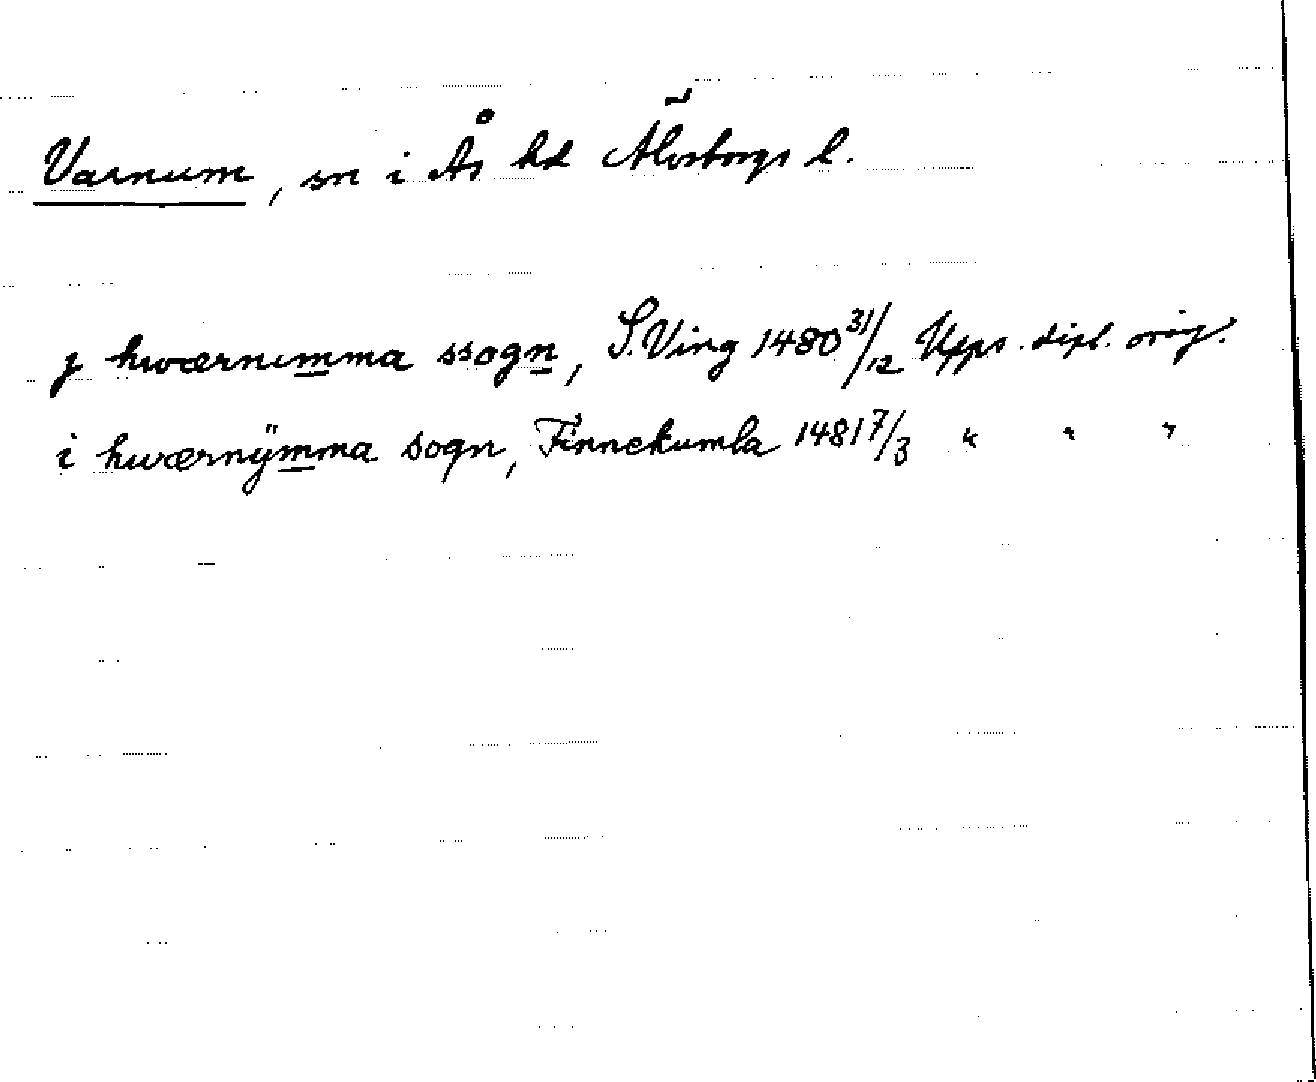 Varnum, sn i Ås hd Älvsborgs l.
j hwærnimma ssogn, S. Ving 1480 31/12 Upps. dipl. orig.
i hwærnÿmma sogn, Finnekumla 1481 7/3 " " "